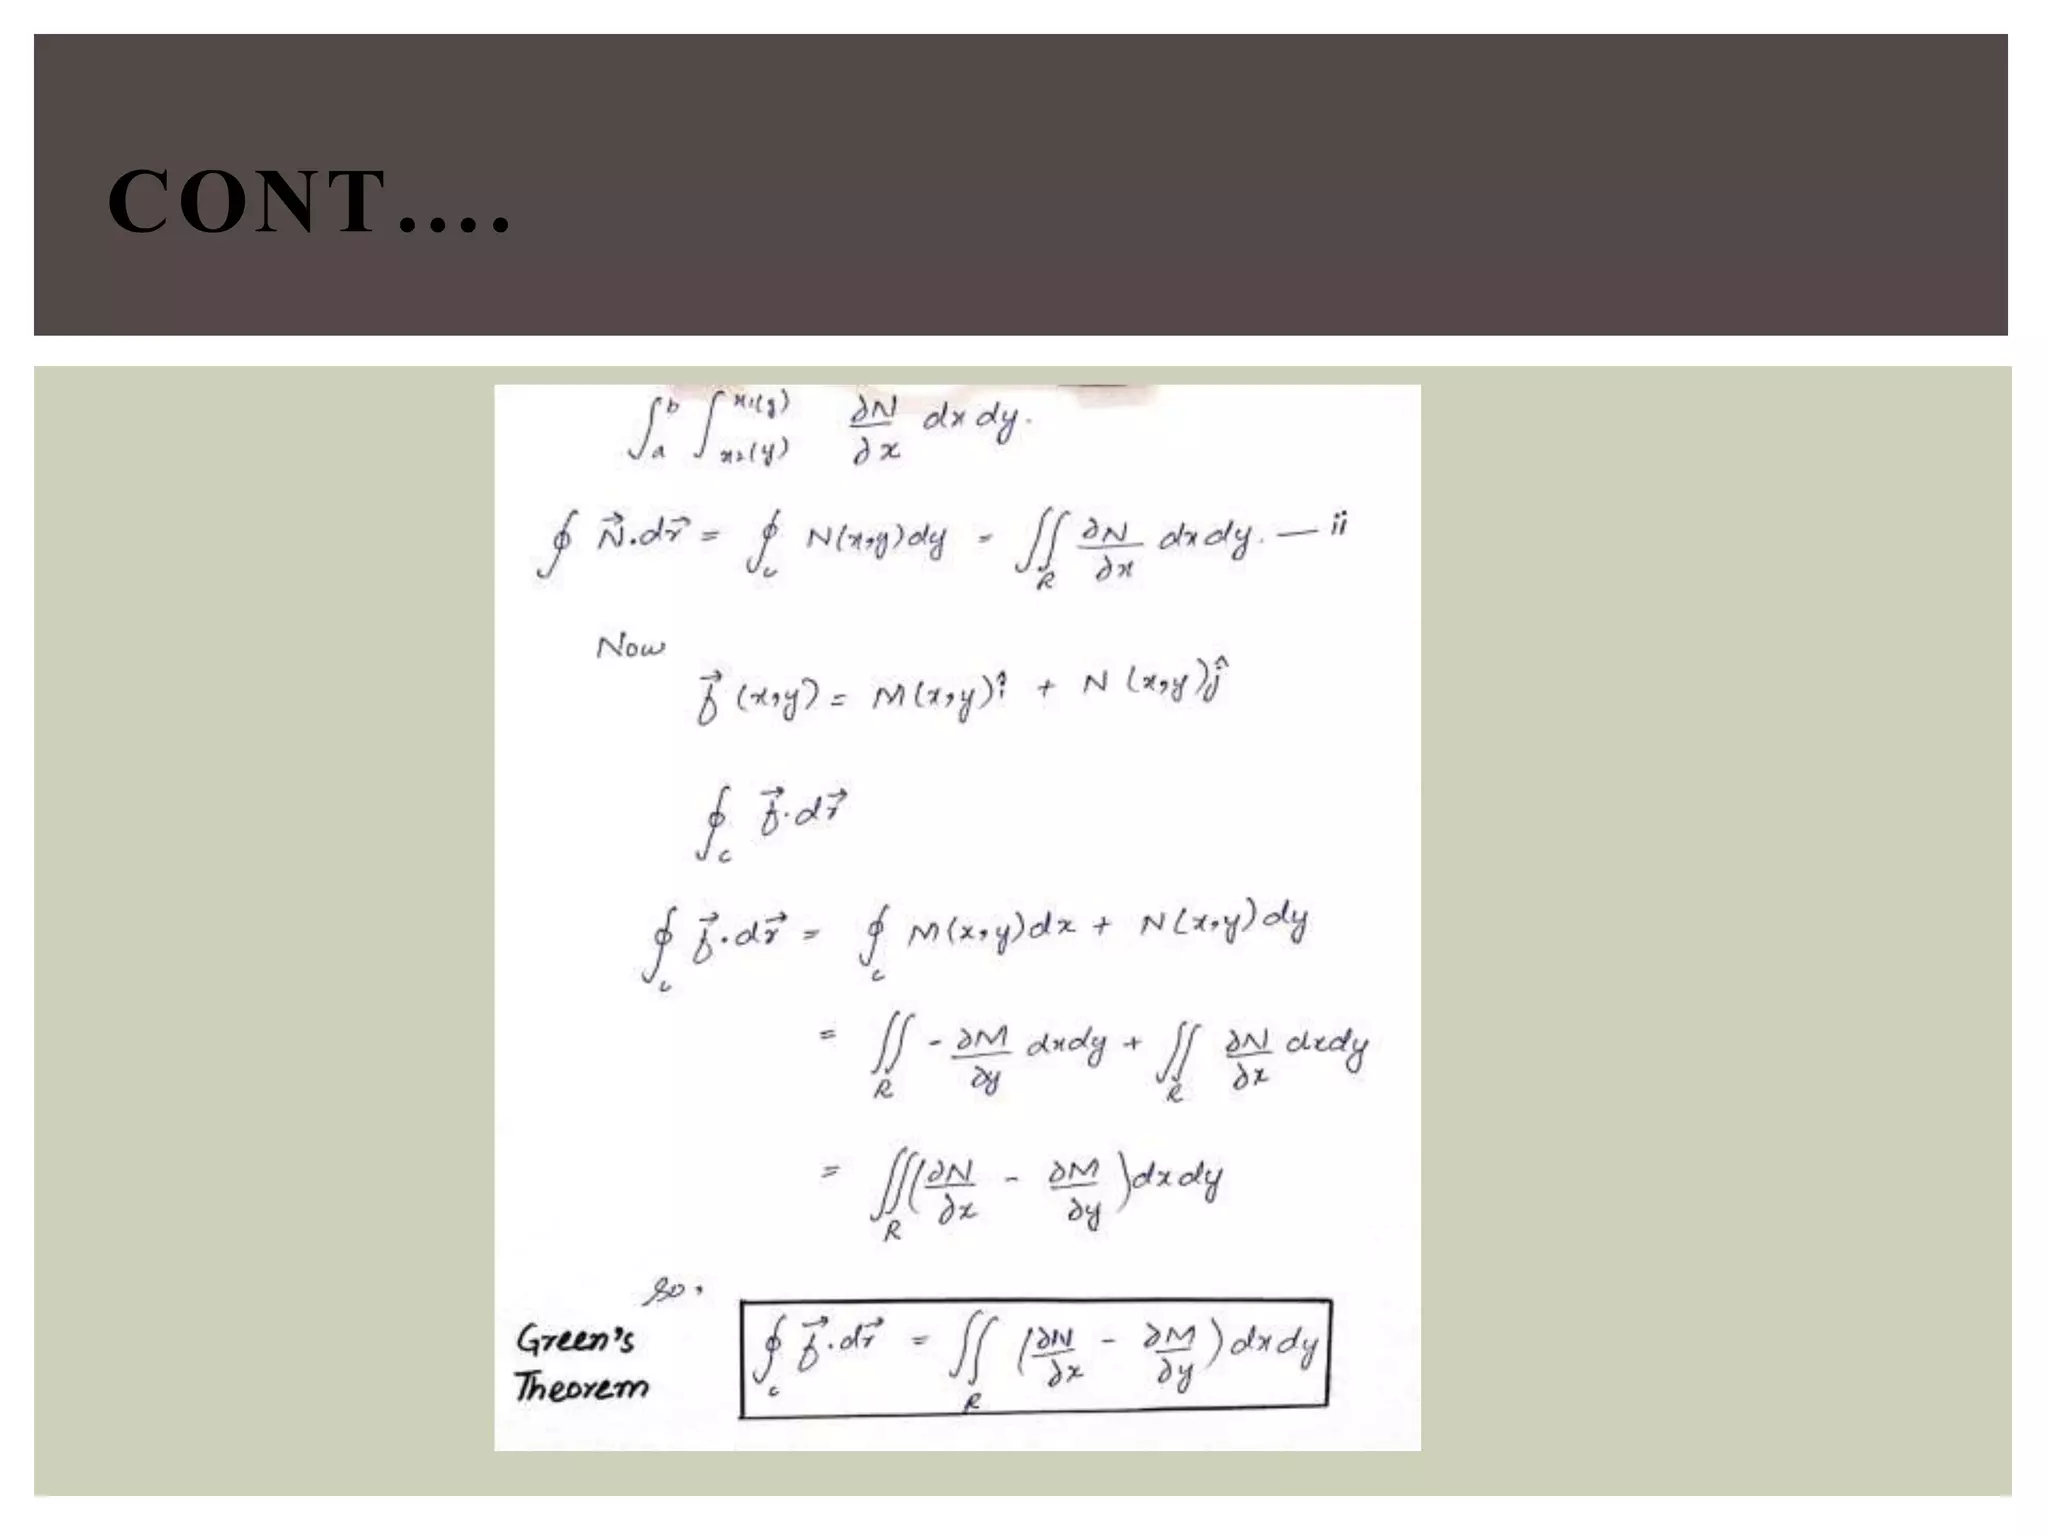 CONT....
∫_a^b ∫_{x2(y)}^{x1(y)} ∂N/∂x dx dy.
∮ N⃗.dr⃗ = ∮_c N(x,y)dy = ∬_R ∂N/∂x dx dy. — ii
Now
f⃗ (x,y) = M(x,y)î + N(x,y)ĵ
∮_c f⃗.dr⃗
∮_c f⃗.dr⃗ = ∮_c M(x,y)dx + N(x,y)dy
= ∬_R -∂M/∂y dxdy + ∬_R ∂N/∂x dxdy
= ∬_R (∂N/∂x - ∂M/∂y) dx dy
So,
Green's Theorem
∮_c f⃗.dr⃗ = ∬_R (∂N/∂x - ∂M/∂y) dx dy